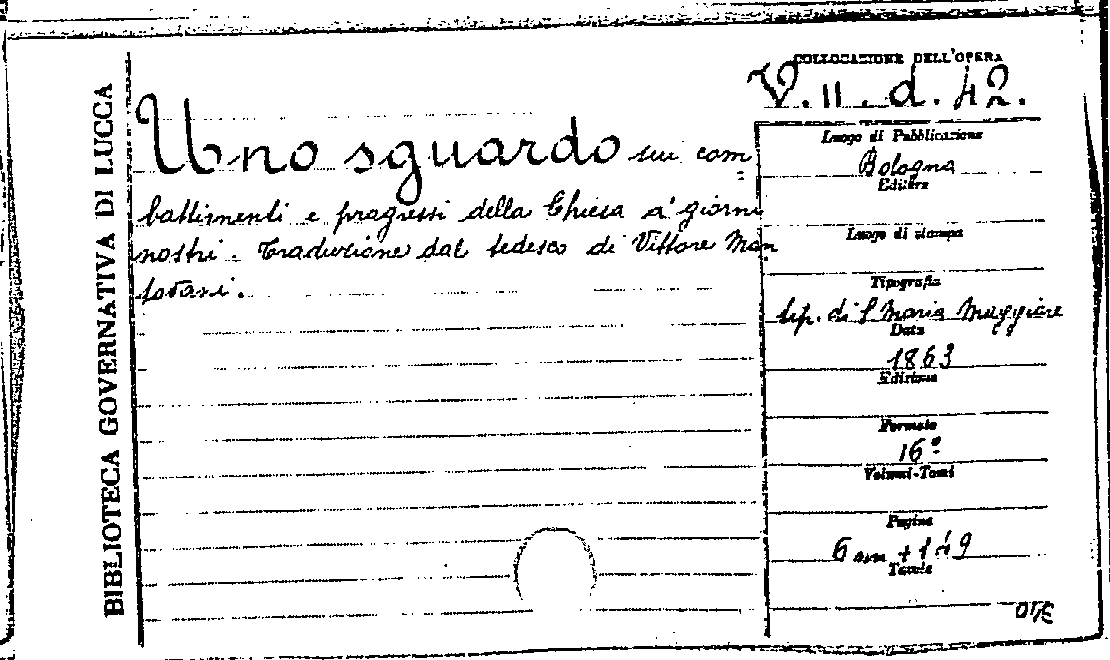 BIBLIOTECA GOVERNATIVA DI LUCCA
COLLOCAZIONE DELL'OPERA
V. II. d. 42.
Uno sguardo sui com=
battimenti e progressi della Chiesa a' giorni
nostri. Traduzione dal tedesco di Vittore Man
tovani.
Luogo di Pubblicazione
Bologna
Editore
Luogo di stampa
Tipografia
tip. di S. Maria Maggiore
Data
1863
Edizione
Formato
16º
Volumi-Tomi
Pagine
6 nn + 149
Tavole